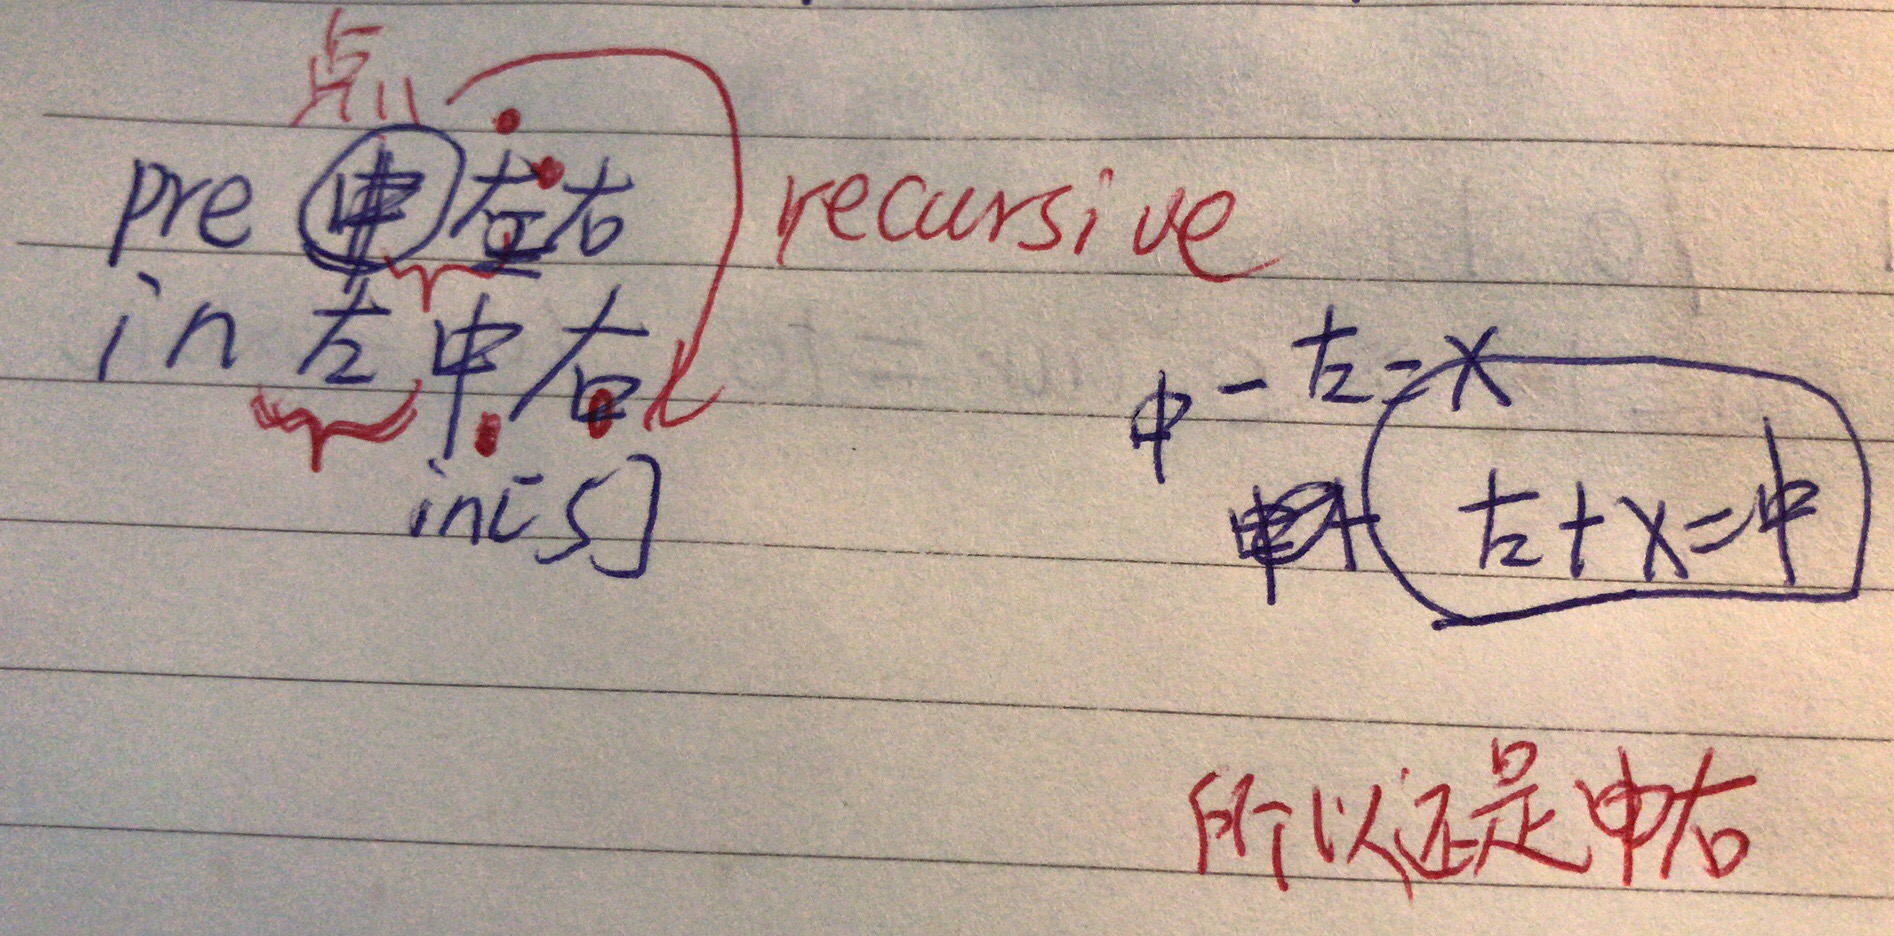 点
pre 中左右
recursive
in 左中右
in[s]
中-左=X
左+X=中
所以还是中右